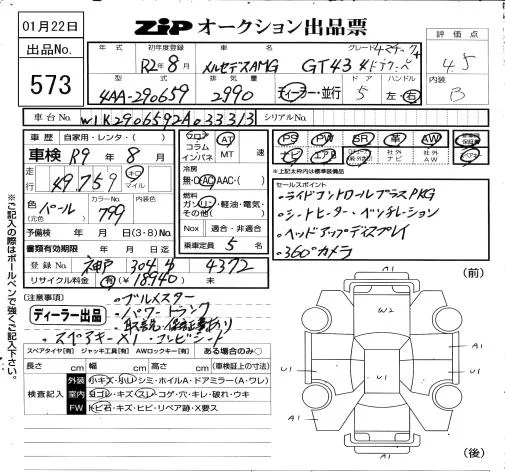 01月22日
ZiP オークション出品票
出品No.
573
年式 初年度登録 車名 グレード 4マチック+
R2年8月 メルセデスAMG GT43 4ドアクーペ
評価点
4.5
型式 排気量 ドア ハンドル
4AA-290659 2990 ディーラー・並行 5 左・右
内装
B
車台No. W1K2906592A033313 シリアルNo.
車歴 自家用・レンタ・( )
車検 R9年8月
走行 49,759 キロ マイル
色(元色) パール カラーNo. 799 内装色
予備検 年 月 日(3・8)No.
書類有効期限 年 月 日迄
登録No. 神戸 304 4372
リサイクル料金 有(¥18940) 未
フロア コラム インパネ AT MT 速
冷房 無・○AC・AAC・( )
燃料 ガソリン・軽油・電気・その他( )
Nox 適合・非適合
乗車定員 5 名
PS PW SR 革 AW
ナビ エアB 社外ナビ 社外AW
*上記太枠内は標準装備品
セールスポイント
・ライドコントロールプラスPKG
・シートヒーター・ベンチレーション
・ヘッドアップディスプレイ
・360°カメラ
※ご記入の際はボールペンで強くご記入下さい。
(注意事項)
・ブルメスター
ディーラー出品
・パワートランク
・取説・保証書あり
・スペアキー×1
スペアタイヤ[有] ジャッキ工具[有] AWロックキー[有] ある場合のみ○
長さ cm 幅 cm 高さ cm (車検証上の寸法)
検査記入
外装 小キズ・小凹・シミ・ホイルA・ドアミラー(A・ワレ)
室内 ヨゴレ・キズ・スレ・コゲ・穴・キレ・破れ・ウキ
FW トビ石・キズ・ヒビ・リペア跡・X要ス
(前)
A1
W2
A1
U1
U1
U1
A1
A1
(後)